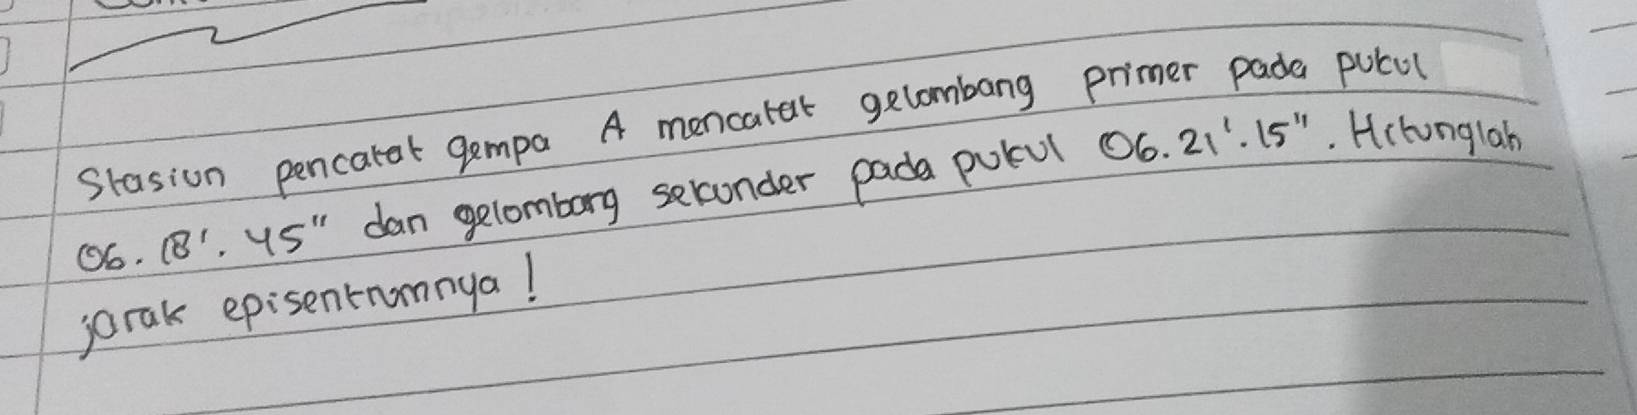 Stasiun pencatat gempa A mencatat gelombang primer pada pukul
06.18'.45" dan gelombang sekunder pada pukul 06.21'.15". Hitunglah
jarak episentrumnya!